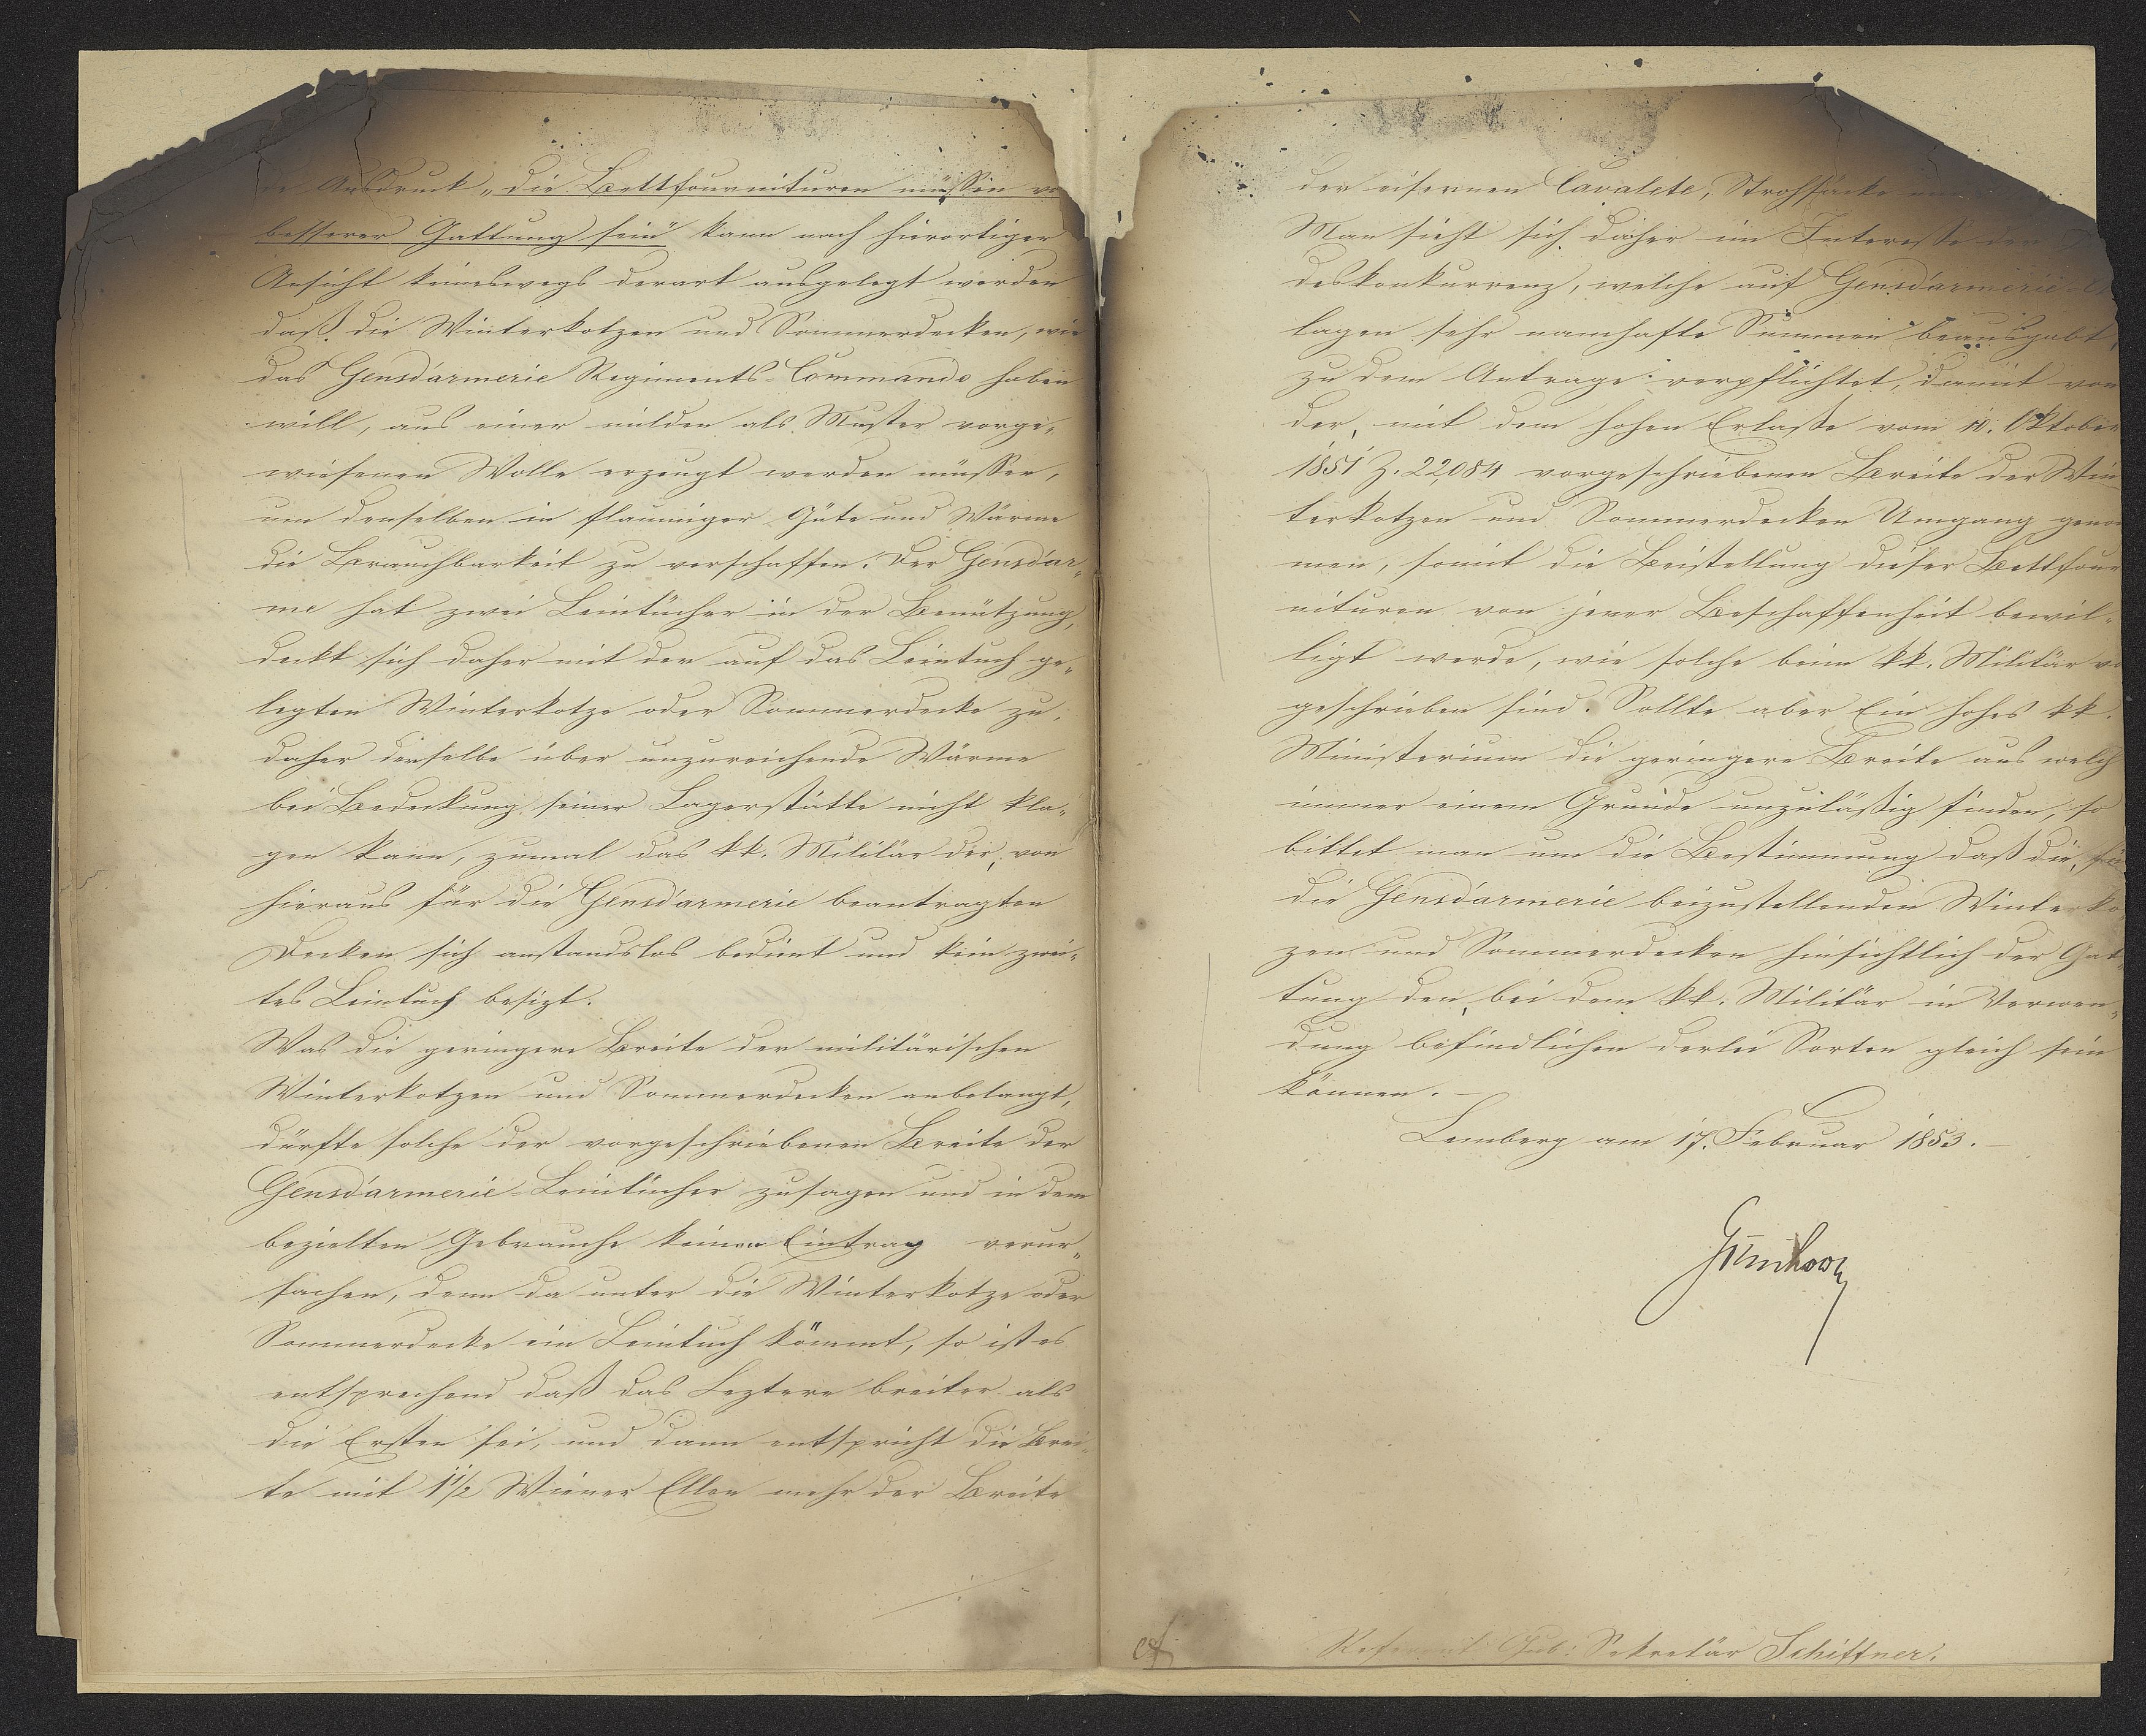 Ausdruck „die Bettfournituren müssen
besserer Gattung sein" kann nach hierortiger
Ansicht keineswegs derart ausgelegt werden
daß die Winterkotzen und Sommerdecken, wie
das Gensdarmerie Regiments-Commando haben
will, aus einer milden als Muster vorge„
wiesenen Wolle erzeugt werden müssen,
um denselben in flaumiger Güte und Wärme
die Brauchbarkeit zu verschaffen. Der Gensdar„
me hat zwei Leintücher in der Benützung,
deckt sich daher mit der auf das Leintuch ge„
legten Winterkotze oder Sommerdecke zu,
daher derselbe über unzureichende Wärme
bei Bedeckung seiner Lagerstätte nicht kla„
gen kann, zumal das kk. Militär der, von
hieraus für die Gensdarmerie beantragten
Decken sich anstandslos bedient und kein zwei„
tes Leintuch besizt.
Was die geringere Breite der militärischen
Winterkotzen und Sommerdecken anbelangt,
dürfte solche der vorgeschriebenen Breite der
Gensdarmerie-Leintücher zusagen und in dem
bezielten Gebrauche keinen Eintrag verur„
sachen, denn da unter die Winterkotze oder
Sommerdecke ein Leintuch kömmt, so ist es
entsprechend daß das Leztere breiter als
die Ersten sei, und dann entspricht die Brei„
te mit 1 1/2 Wiener Ellen mehr der Breite
der eisernen Cavalete, Strohsäcke
Man sieht sich daher im Interesse der
deskonkurrenz, welche auf Gensdarmerie-
lagen sehr namhafte Summen beausgabt,
zu dem Antrage verpflichtet, damit von
der, mit dem hohen Erlaße vom Oktober
1851 Z. 22,084 vorgeschriebenen Breite der Win
terkotzen und Sommerdecken Umgang genom
men, somit die Beistellung dieser Bettfour
nituren von jener Beschaffenheit bewil„
ligt werde, wie solche beim kk. Militär vo
geschrieben sind. Sollte aber Ein hohes kk.
Ministerium die geringere Breite aus welch
immer einem Grunde unzuläßig finden, so
bittet man um die Bestimmung daß die, für
die Gensdarmerie beizustellenden Winterko
zen und Sommerdecken hinsichtlich der Gat„
tung den, bei dem kk. Militär in Verwen„
dung befindlichen derlei Sorten gleich sein
können. –
Lemberg am 17. Februar 1853. –
Gub: Sekretär Schiffner.